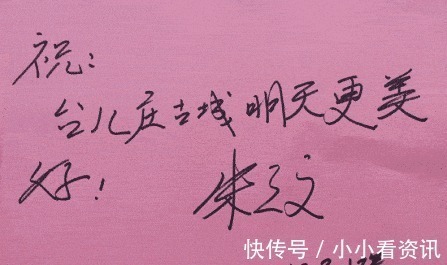 祝:
台儿庄古城明天更美
好! 朱之文
快传号 / 小小看资讯